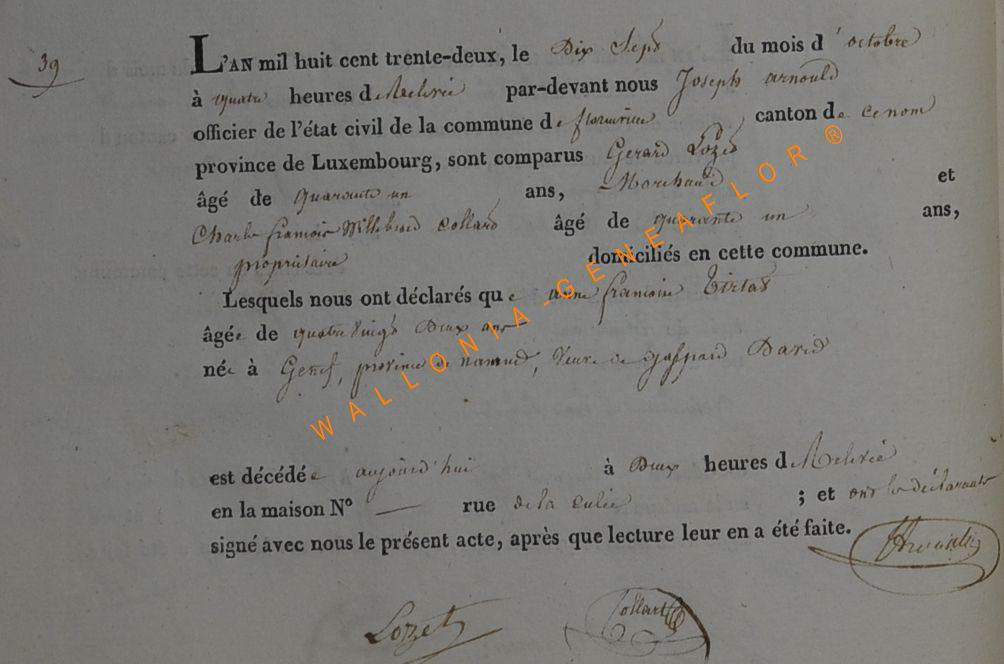 39
L'AN mil huit cent trente-deux, le Dix Sept du mois d'octobre
à quatre heures de Relevée par-devant nous Joseph arnould
officier de l'état civil de la commune de canton de
province de Luxembourg, sont comparus Gerard Lozet
âgé de quarante un ans, Marchand et
Charle françois Willebrord Collard âgé de quarante un ans,
propriétaire domiciliés en cette commune.
Lesquels nous ont déclarés que anne françoise
âgée de quatre vingt Deux ans
née à province de namur, Veuve de gaspard David
est décédée aujourd'hui à Deux heures de Relevée
en la maison N° — rue de la ; et ont les déclarants
signé avec nous le présent acte, après que lecture leur en a été faite.
Lozet Collart
WALLONIA-GENEAFLOR®